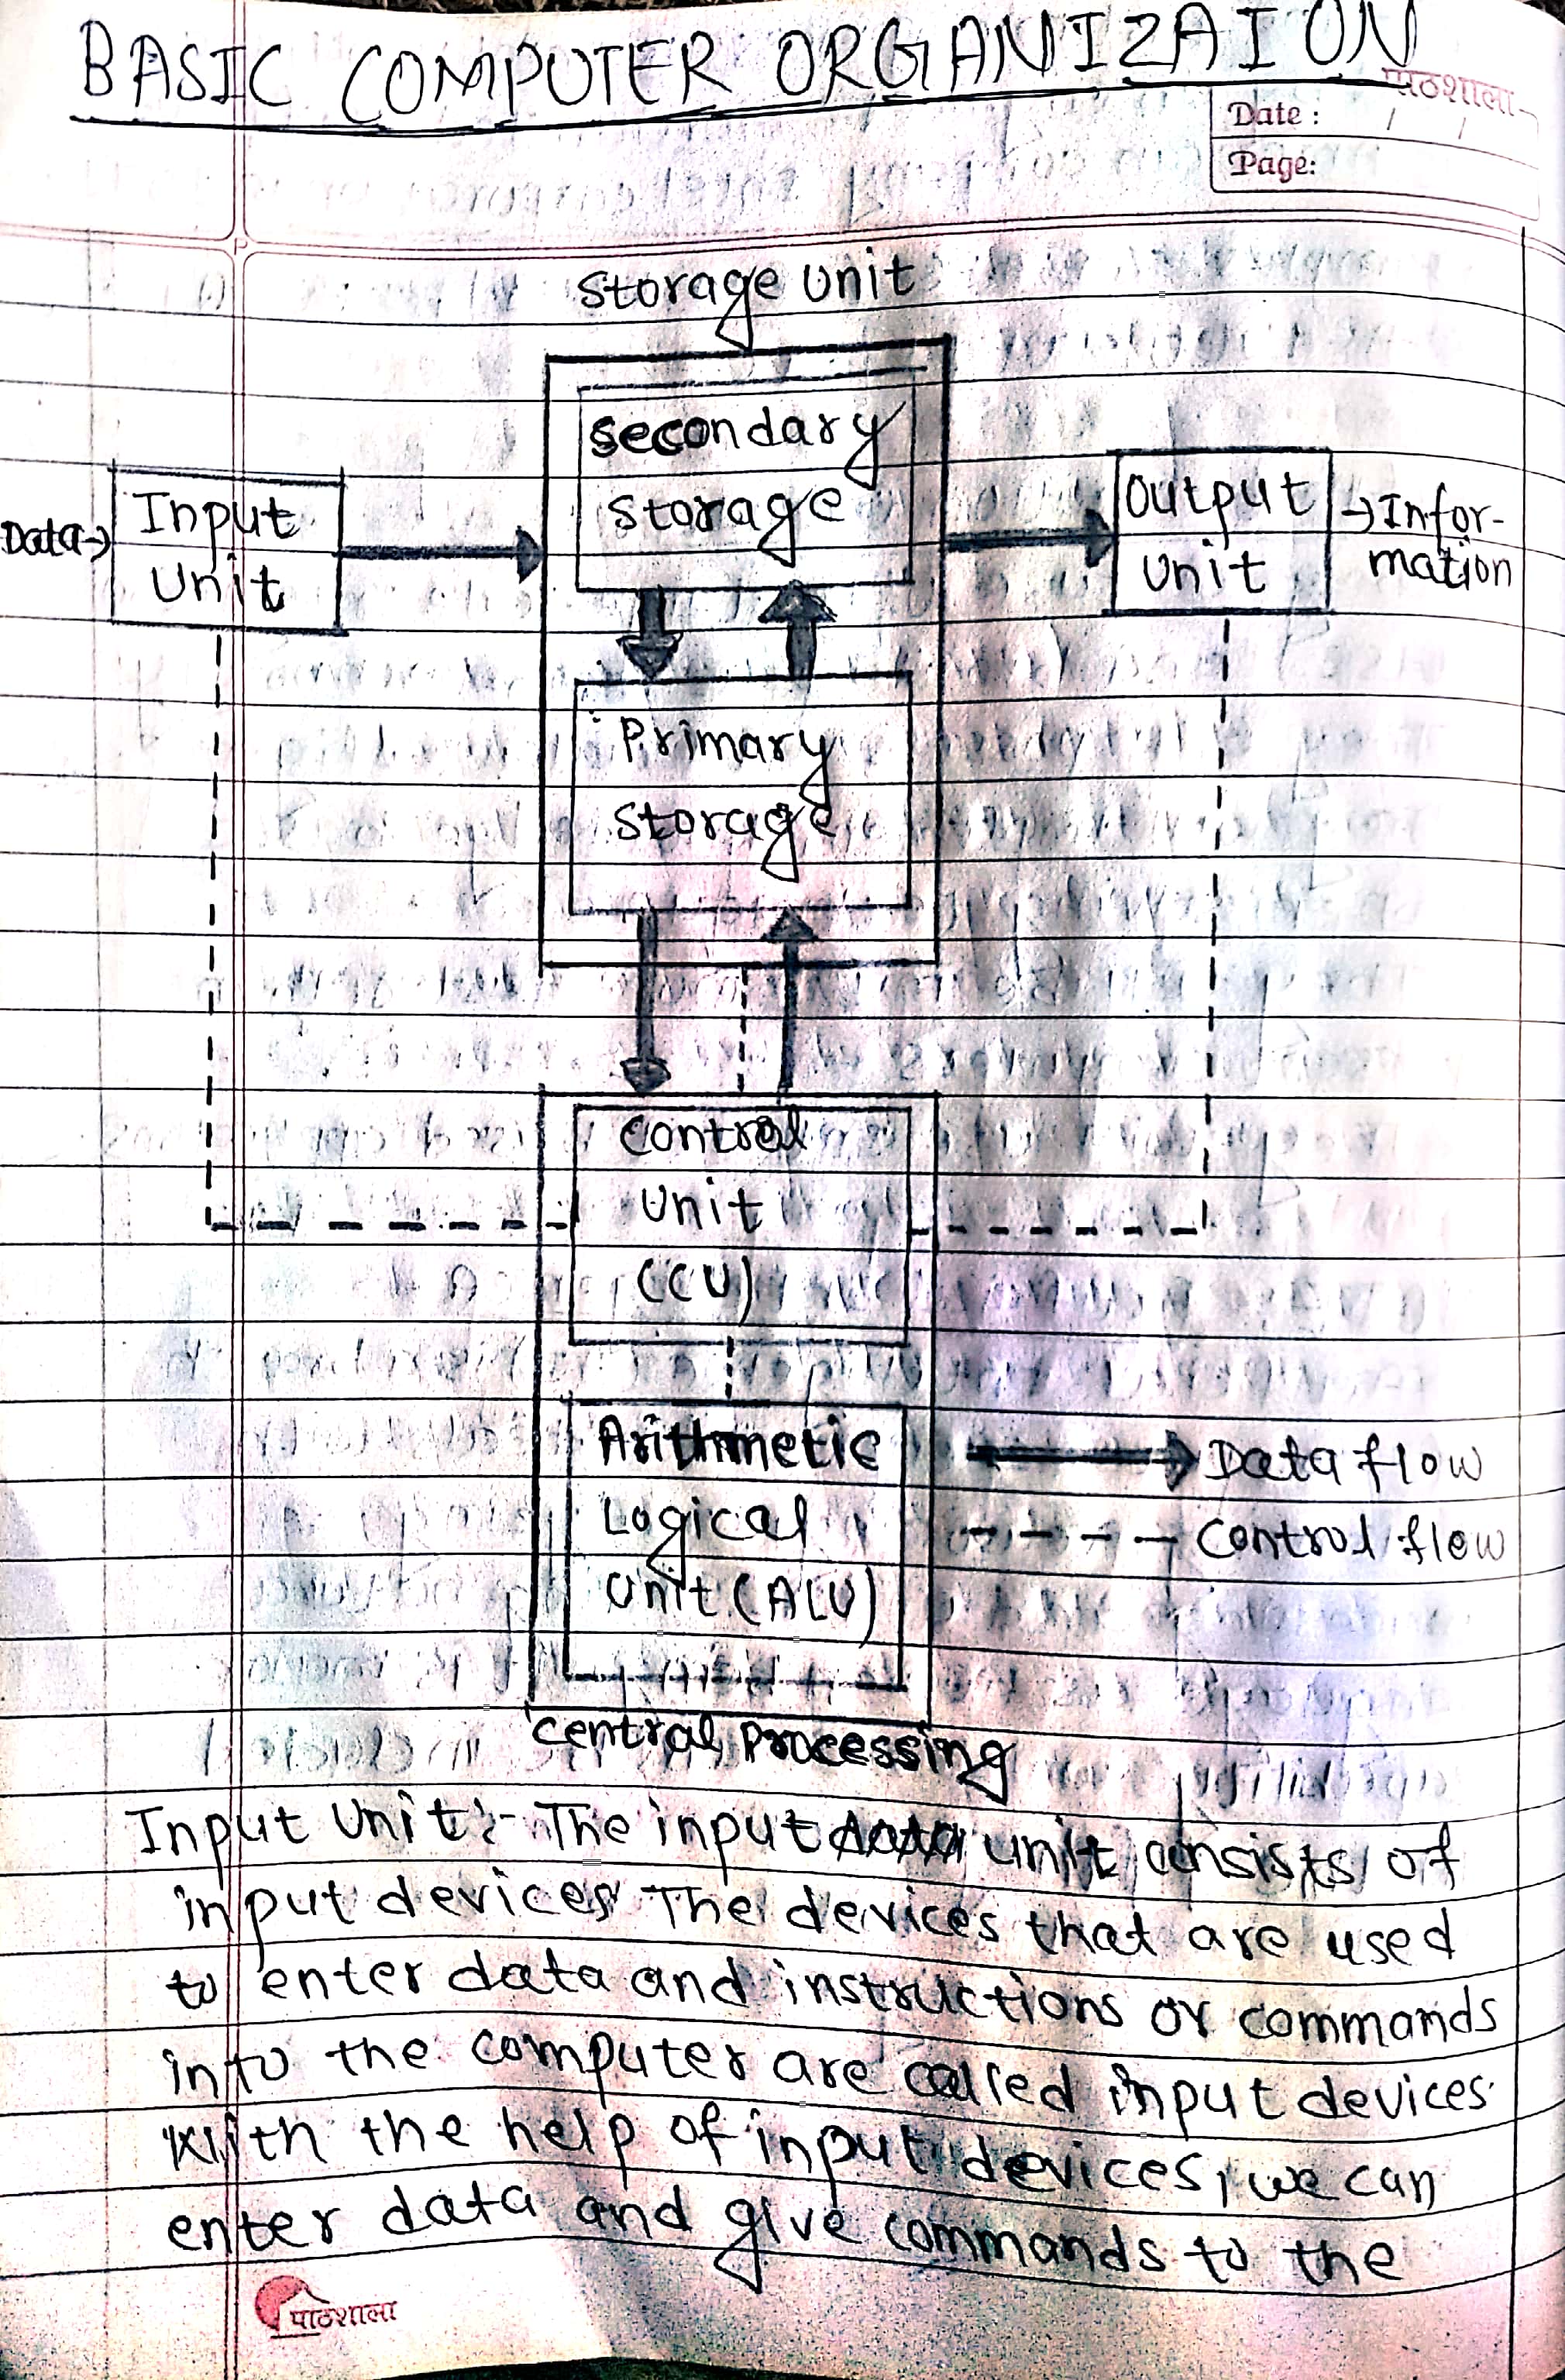 BASIC COMPUTER ORGANIZAION
पाठशाला
Date : / /
Page:
Storage Unit
Secondary
Storage
Data→
Input
Unit
Output
Unit
→Infor-
mation
Primary
Storage
Control
Unit
(CU)
Arithmetic
Logical
Unit (ALU)
Data flow
Control flow
Central Processing
Input Unit:- The input unit consists of
input devices The devices that are used
to enter data and instructions or commands
into the computer are called input devices.
With the help of input devices, we can
enter data and give commands to the
पाठशाला